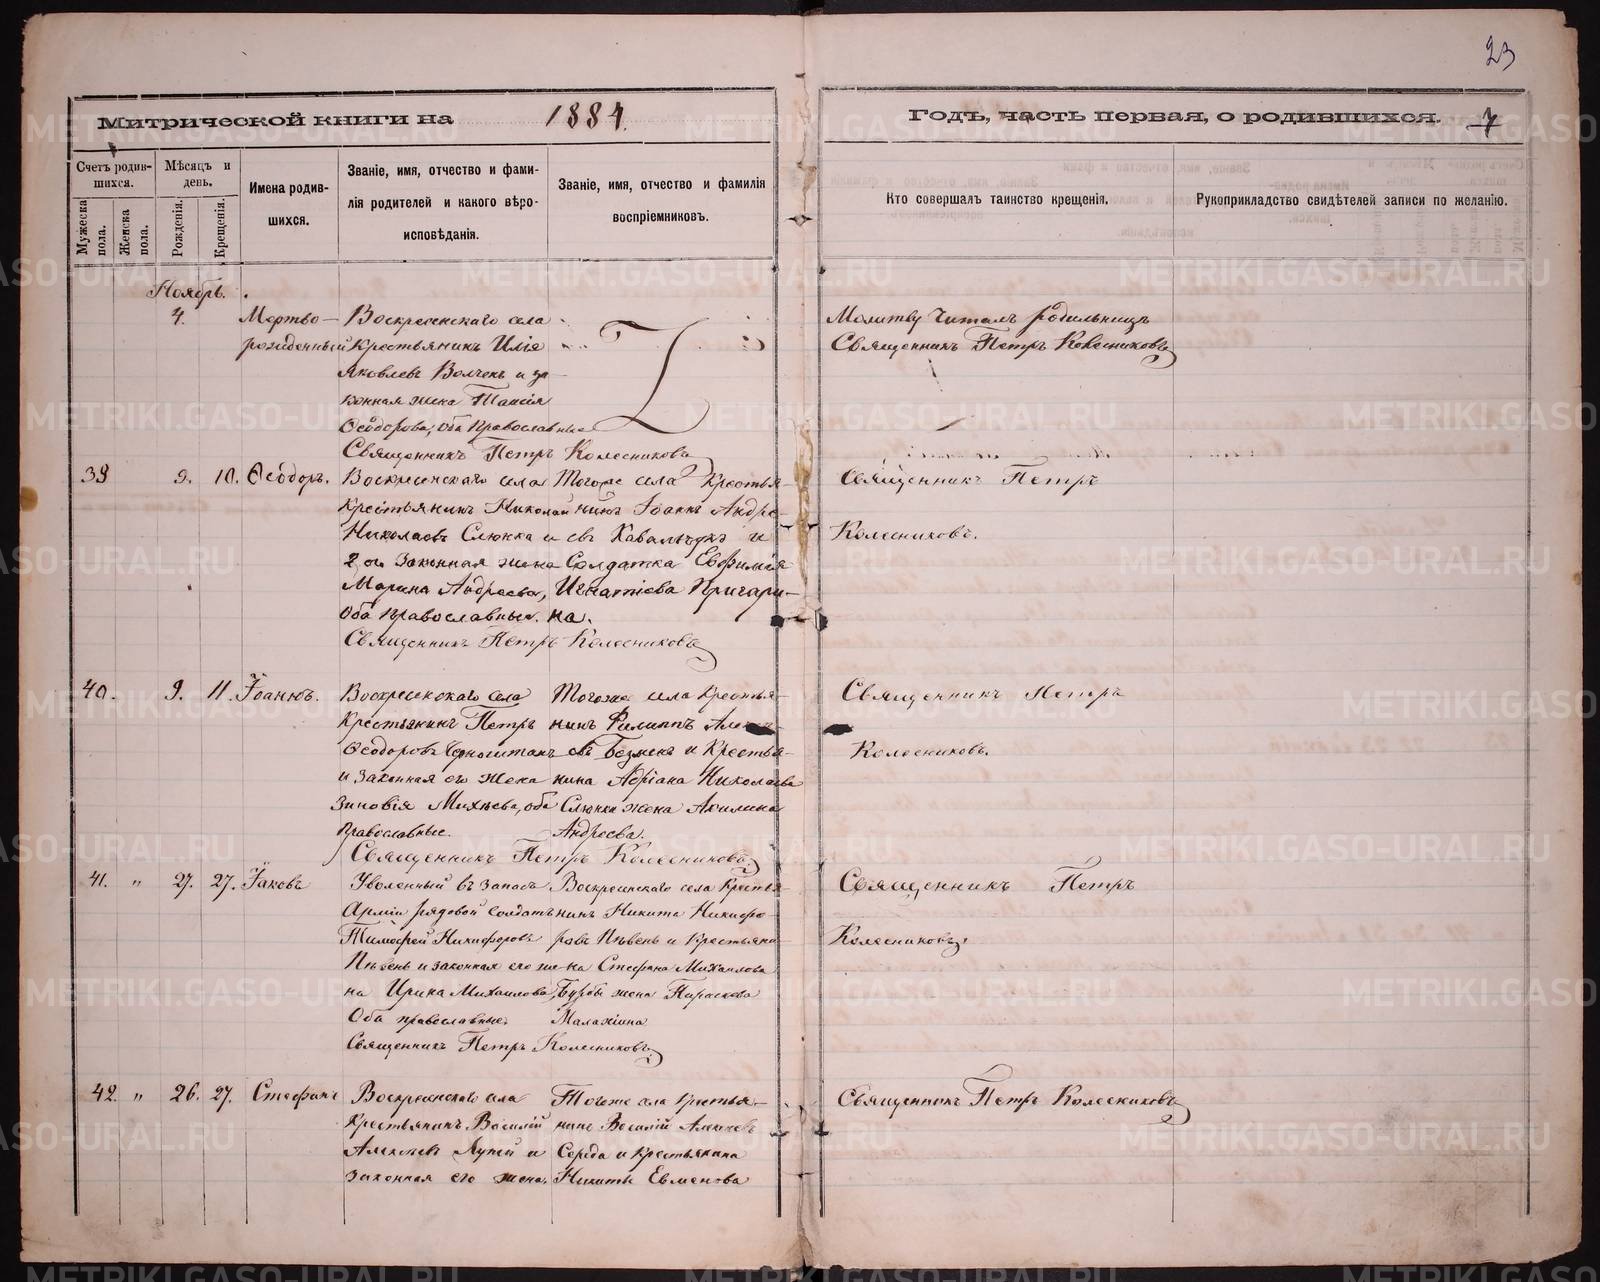 23
Митрической книги на 1884.
Годъ, часть первая, о родившихся. 7
Счетъ родив-
шихся.
Мѣсяцъ и
день.
Мужеска пола.
Женска пола.
Рожденія.
Крещенія.
Имена родив-
шихся.
Званіе, имя, отчество и фами-
лія родителей и какого вѣро-
исповѣданія.
Званіе, имя, отчество и фамилія
воспріемниковъ.
Кто совершалъ таинство крещенія.
Рукоприкладство свидѣтелей записи по желанію.
Ноябрь.
4.
Мертво-
рожденный
Воскресенскаго села
Крестьянинъ Илія
Яковлевъ Волчекъ и за-
конная жена Таисія
Ѳеодорова, оба православные
Священникъ Петръ Колесниковъ
Молитву читалъ родильницѣ
Священникъ Петръ Колесниковъ
39 9. 10. Ѳеодоръ.
Воскресенскаго села
Крестьянинъ Николай
Николаевъ Слюнка и
2 ая законная жена
Марина Андреева,
Оба православные.
Тогоже села крестья-
нинъ Іоаннъ Андре-
евъ Кавальчукъ и
Солдатка Евфимія
Игнатіева Пригари-
на.
Священникъ Петръ Колесниковъ
Священникъ Петръ
Колесниковъ.
40. 9. 11. Іоаннъ.
Воскресенскаго села
Крестьянинъ Петръ
Ѳеодоровъ Чорноштанъ
и законная его жена
Зиновія Михѣева, оба
православные.
Тогоже села крестья-
нинъ Филиппъ
евъ Безменъ и Крестья-
нина Адріана Николаева
Слюнки жена Акилина
Андреева.
Священникъ Петръ Колесниковъ.
Священникъ Петръ
Колесниковъ.
41. " 27. 27. Іаковъ
Уволенный въ запасъ
Арміи рядовой солдатъ
Тимофей Никифоровъ
Пѣвень и законная его же-
на Ирина Михаилова,
Оба православные.
Воскресенскаго села Крестья-
нинъ Никита Никифо-
ровъ Пѣвень и Крестьяни-
на Стефана Михаилова
Бурбы жена Параскева
Малахіина
Священникъ Петръ Колесниковъ.
Священникъ Петръ
Колесниковъ.
42. " 26. 27. Стефанъ
Воскресенскаго села
Крестьянинъ Василій
Алексѣевъ Лупей и
законная его жена.
Тогоже села Крестья-
нинъ Василій Алексѣевъ
Середа и крестьянина
Никиты Евменова
Священникъ Петръ Колесниковъ